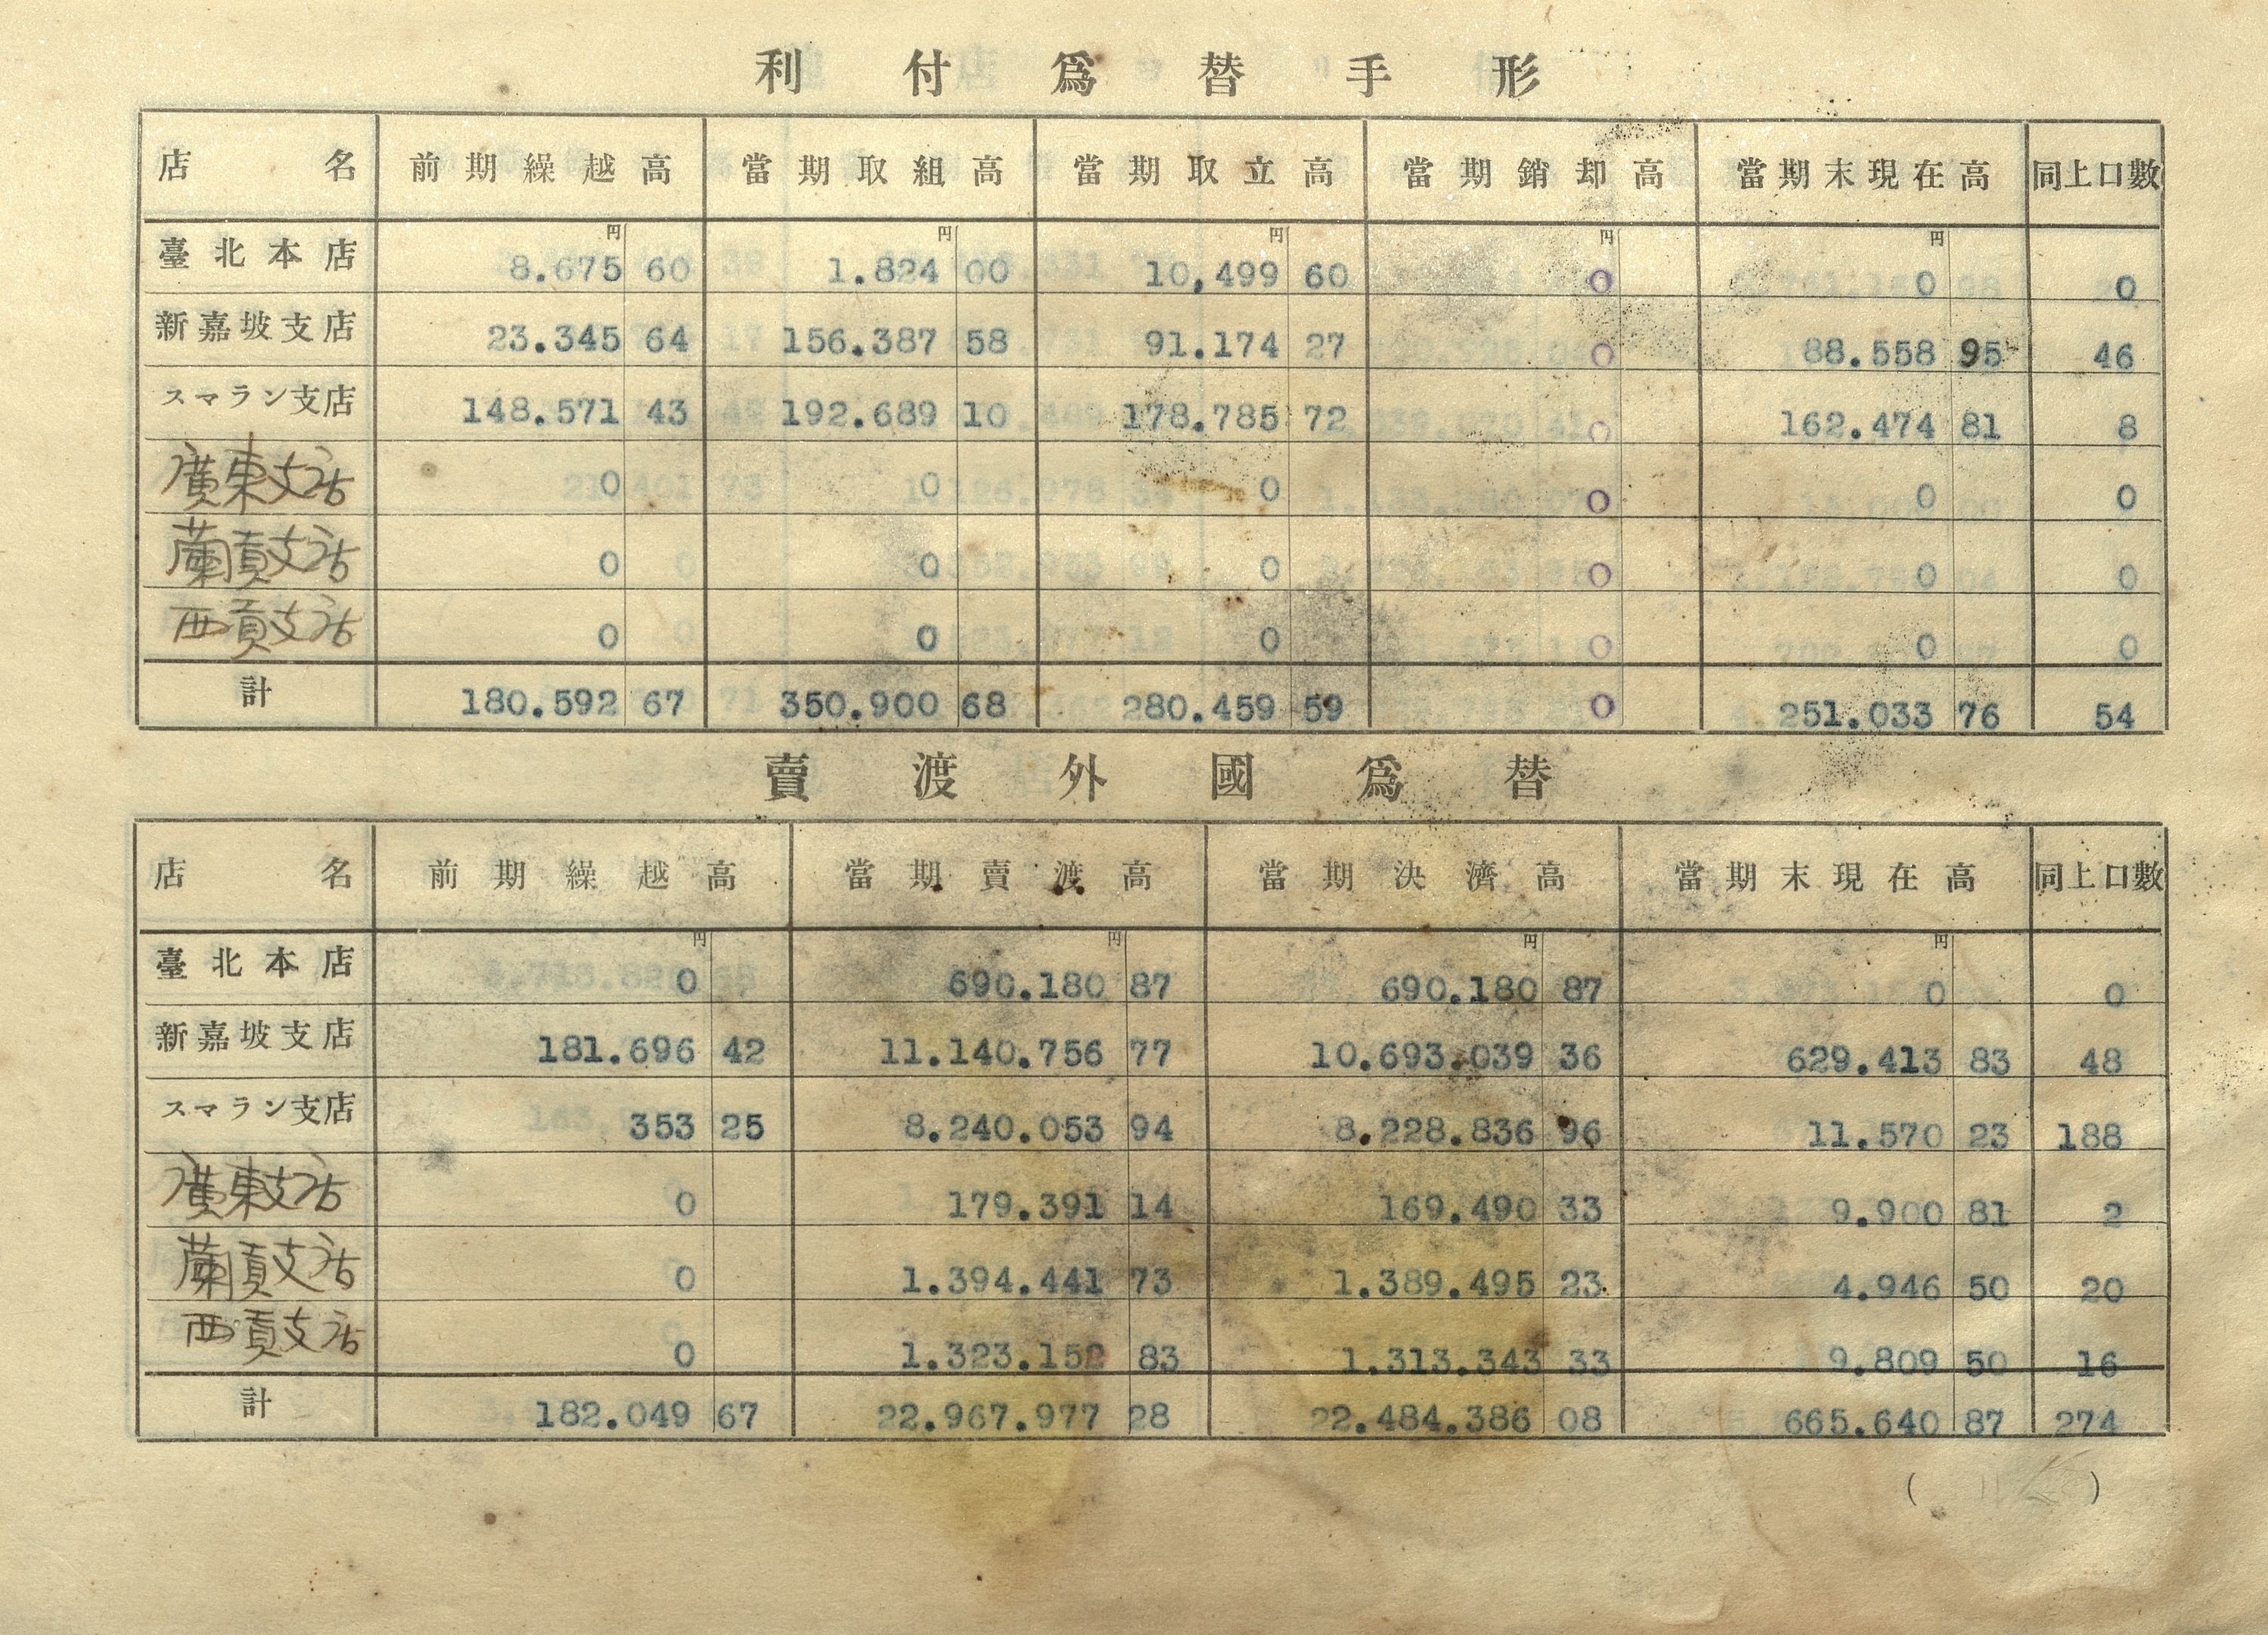 利付爲替手形
店名 前期繰越高 當期取組高 當期取立高 當期銷却高 當期末現在高 同上口數
円 円 円 円 円
臺北本店 8.675 60 1.824 00 10,499 60 0 0 0
新嘉坡支店 23.345 64 156.387 58 91.174 27 0 88.558 95 46
スマラン支店 148.571 43 192.689 10 178.785 72 0 162.474 81 8
廣東支店 0 0 0 0 0 0
蘭貢支店 0 0 0 0 0 0
西貢支店 0 0 0 0 0 0
計 180.592 67 350.900 68 280.459 59 0 251.033 76 54
賣渡外國爲替
店名 前期繰越高 當期賣渡高 當期決濟高 當期末現在高 同上口數
円 円 円 円
臺北本店 0 690.180 87 690.180 87 0 0
新嘉坡支店 181.696 42 11.140.756 77 10.693.039 36 629.413 83 48
スマラン支店 353 25 8.240.053 94 8.228.836 96 11.570 23 188
廣東支店 0 179.391 14 169.490 33 9.900 81 2
蘭貢支店 0 1.394.441 73 1.389.495 23 4.946 50 20
西貢支店 0 1.323.152 83 1.313.343 33 9.809 50 16
計 182.049 67 22.967.977 28 22.484.386 08 665.640 87 274
( )